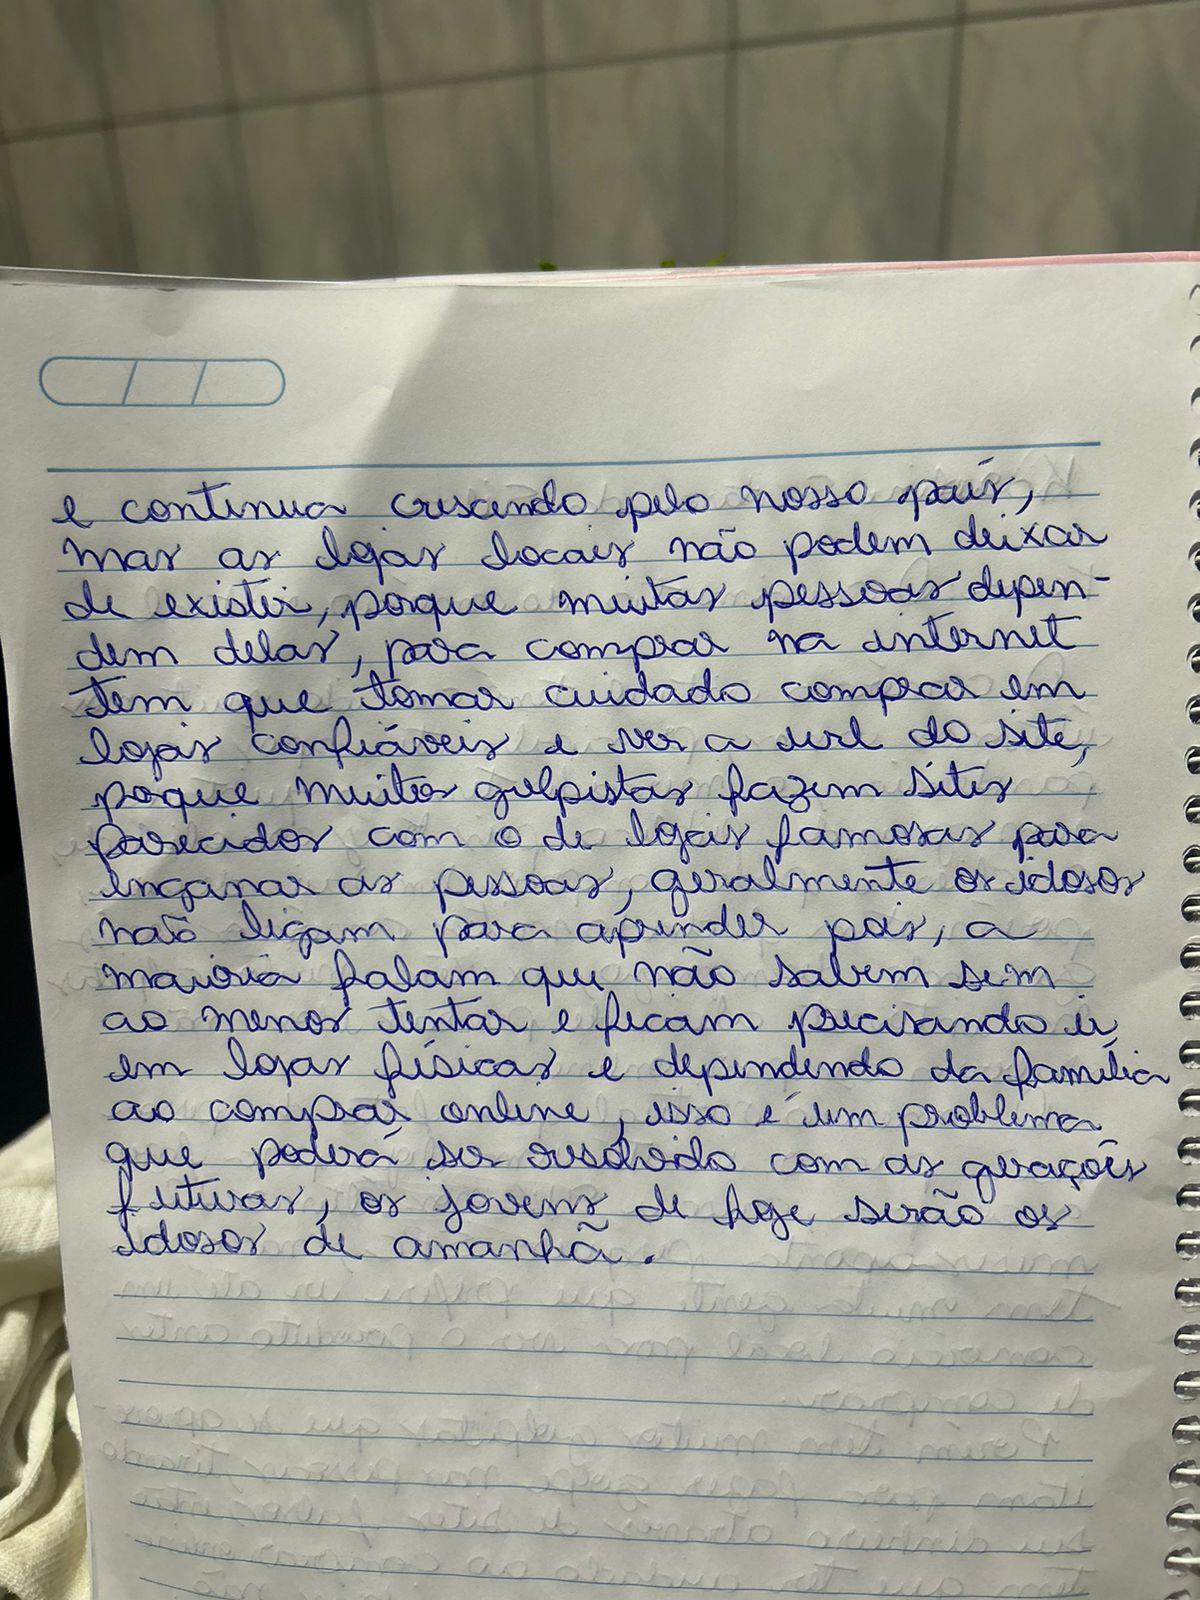 e continua crescendo pelo nosso país,
mas as lojas locais não podem deixar
de existir, porque muitas pessoas depen-
dem delas, para comprar na internet
tem que tomar cuidado comprar em
lojas confiáveis e ver a url do site,
porque muitos golpistas fazem sites
parecidos com o de lojas famosas para
enganar as pessoas, geralmente os idosos
não ligam para aprender pois, a
maioria falam que não sabem sem
ao menos tentar e ficam precisando ir
em lojas físicas e dependendo da família
ao comprar online, isso é um problema
que poderá ser resolvido com as gerações
futuras, os jovens de hoje serão os
idosos de amanhã.